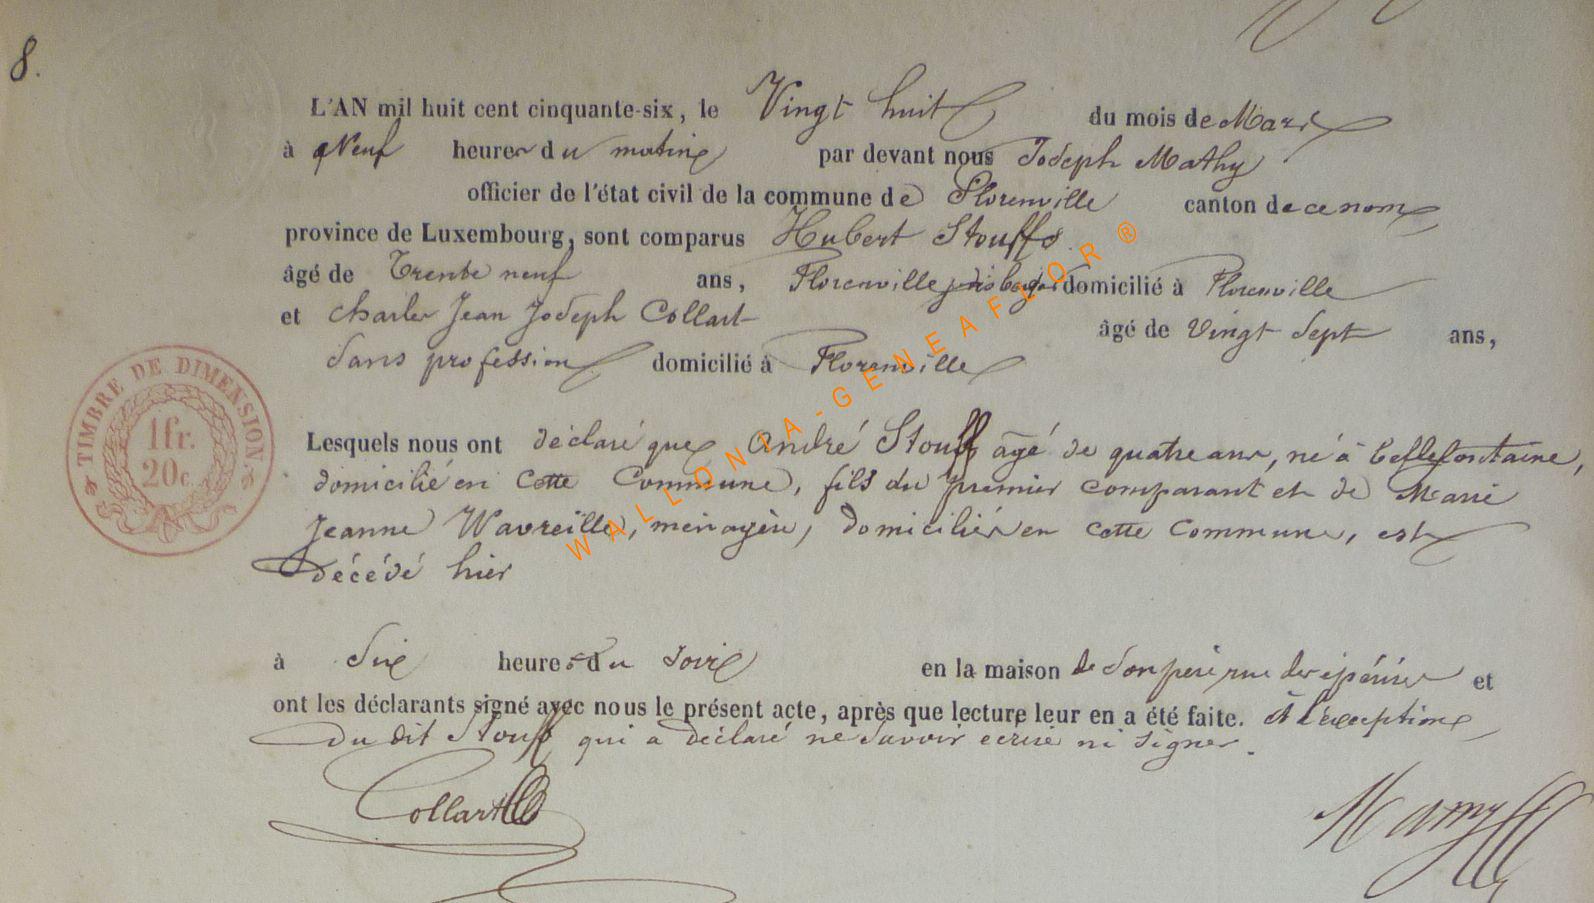 8.
L'AN mil huit cent cinquante-six, le Vingt huit du mois de Mars
à Neuf heures du matin par devant nous Joseph Mathy
officier de l'état civil de la commune de Florenville canton de ce nom
province de Luxembourg, sont comparus Hubert Stouffs
âgé de Trente neuf ans, Florenville domicilié à Florenville
et Charles Jean Joseph Collart âgé de Vingt Sept ans,
Sans profession domicilié à Florenville
Lesquels nous ont déclaré que André Stouff âgé de quatre ans, né à Bellefontaine,
domicilié en cette Commune, fils du premier comparant et de Marie
Jeanne Wavreille, ménagère, domiciliés en cette Commune, est
décédé hier
à Six heures du soir en la maison de Son père, rue des épèriers et
ont les déclarants signé avec nous le présent acte, après que lecture leur en a été faite. à l'exception
Du dit Stouff qui a déclaré ne Savoir écrire ni signer.
Collart
Mathy
TIMBRE DE DIMENSION.
1fr.
20c.
WALLONIA-GENEAFLOR ®